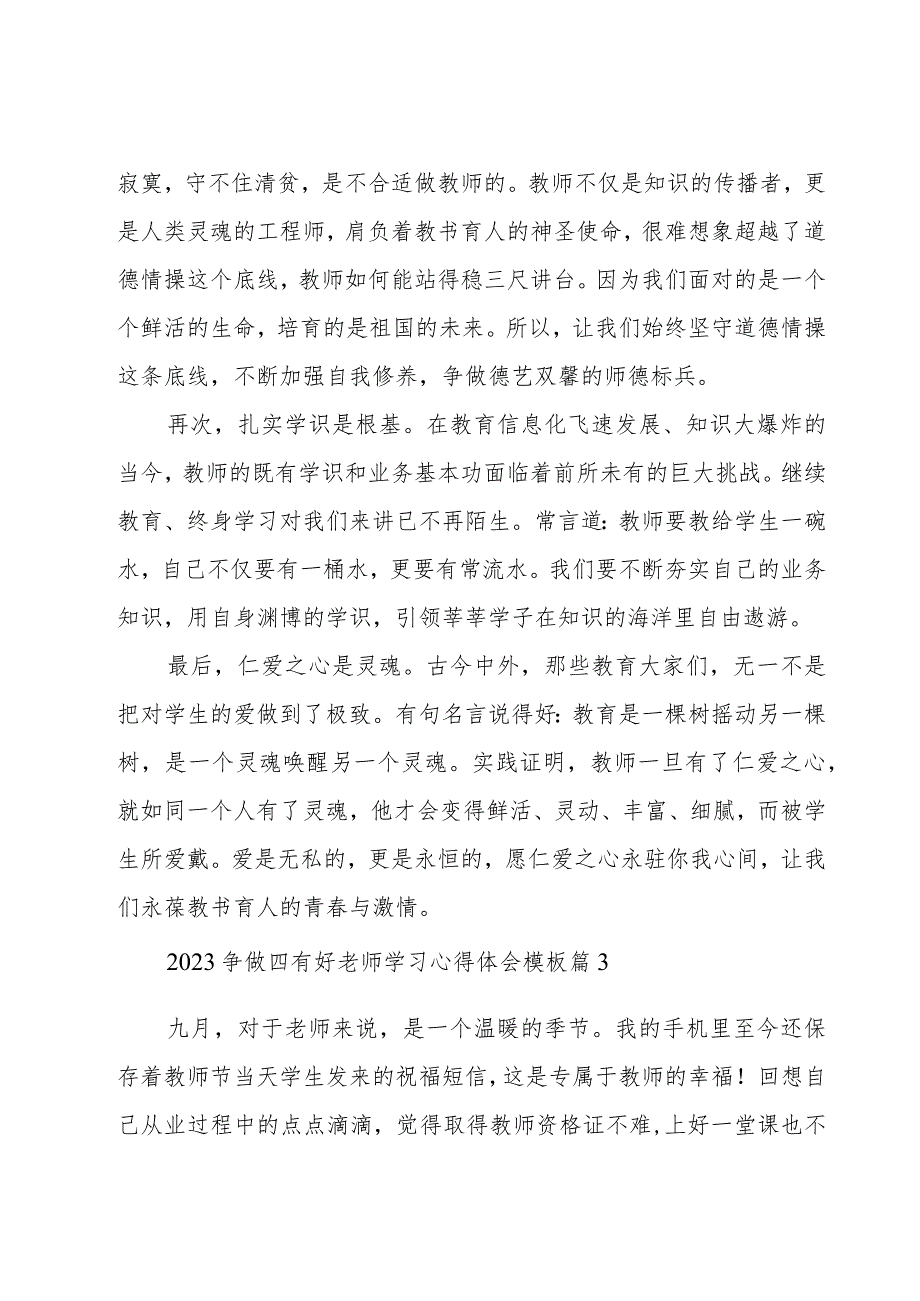 寂寞，守不住清贫，是不合适做教师的。教师不仅是知识的传播者，更
是人类灵魂的工程师，肩负着教书育人的神圣使命，很难想象超越了道
德情操这个底线，教师如何能站得稳三尺讲台。因为我们面对的是一个
个鲜活的生命，培育的是祖国的未来。所以，让我们始终坚守道德情操
这条底线，不断加强自我修养，争做德艺双馨的师德标兵。
再次，扎实学识是根基。在教育信息化飞速发展、知识大爆炸的
当今，教师的既有学识和业务基本功面临着前所未有的巨大挑战。继续
教育、终身学习对我们来讲已不再陌生。常言道：教师要教给学生一碗
水，自己不仅要有一桶水，更要有常流水。我们要不断夯实自己的业务
知识，用自身渊博的学识，引领莘莘学子在知识的海洋里自由遨游。
最后，仁爱之心是灵魂。古今中外，那些教育大家们，无一不是
把对学生的爱做到了极致。有句名言说得好：教育是一棵树摇动另一棵
树，是一个灵魂唤醒另一个灵魂。实践证明，教师一旦有了仁爱之心，
就如同一个人有了灵魂，他才会变得鲜活、灵动、丰富、细腻，而被学
生所爱戴。爱是无私的，更是永恒的，愿仁爱之心永驻你我心间，让我
们永葆教书育人的青春与激情。
2023 争做四有好老师学习心得体会模板篇 3
九月，对于老师来说，是一个温暖的季节。我的手机里至今还保
存着教师节当天学生发来的祝福短信，这是专属于教师的幸福！回想自
己从业过程中的点点滴滴，觉得取得教师资格证不难，上好一堂课也不